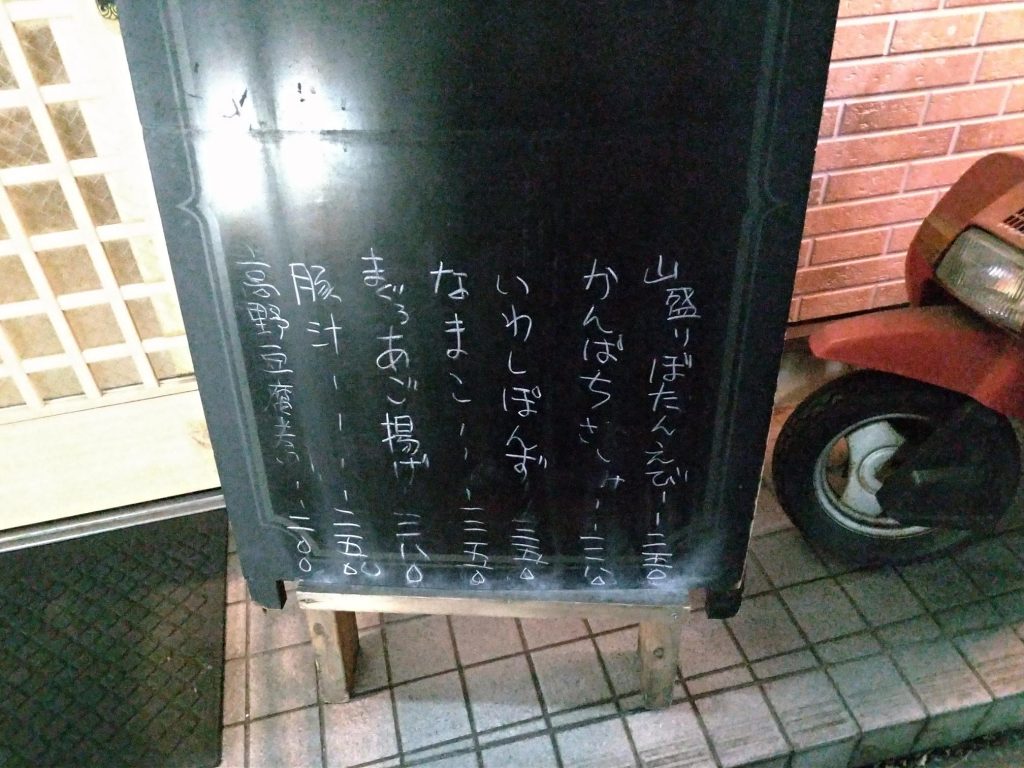 山盛りぼたんえび 二五〇
かんばちさしみ 二八〇
いわしぽんず 二五〇
なまこ 二五〇
まぐろあご揚げ 二八〇
豚汁 二五〇
高野豆腐煮 二〇〇